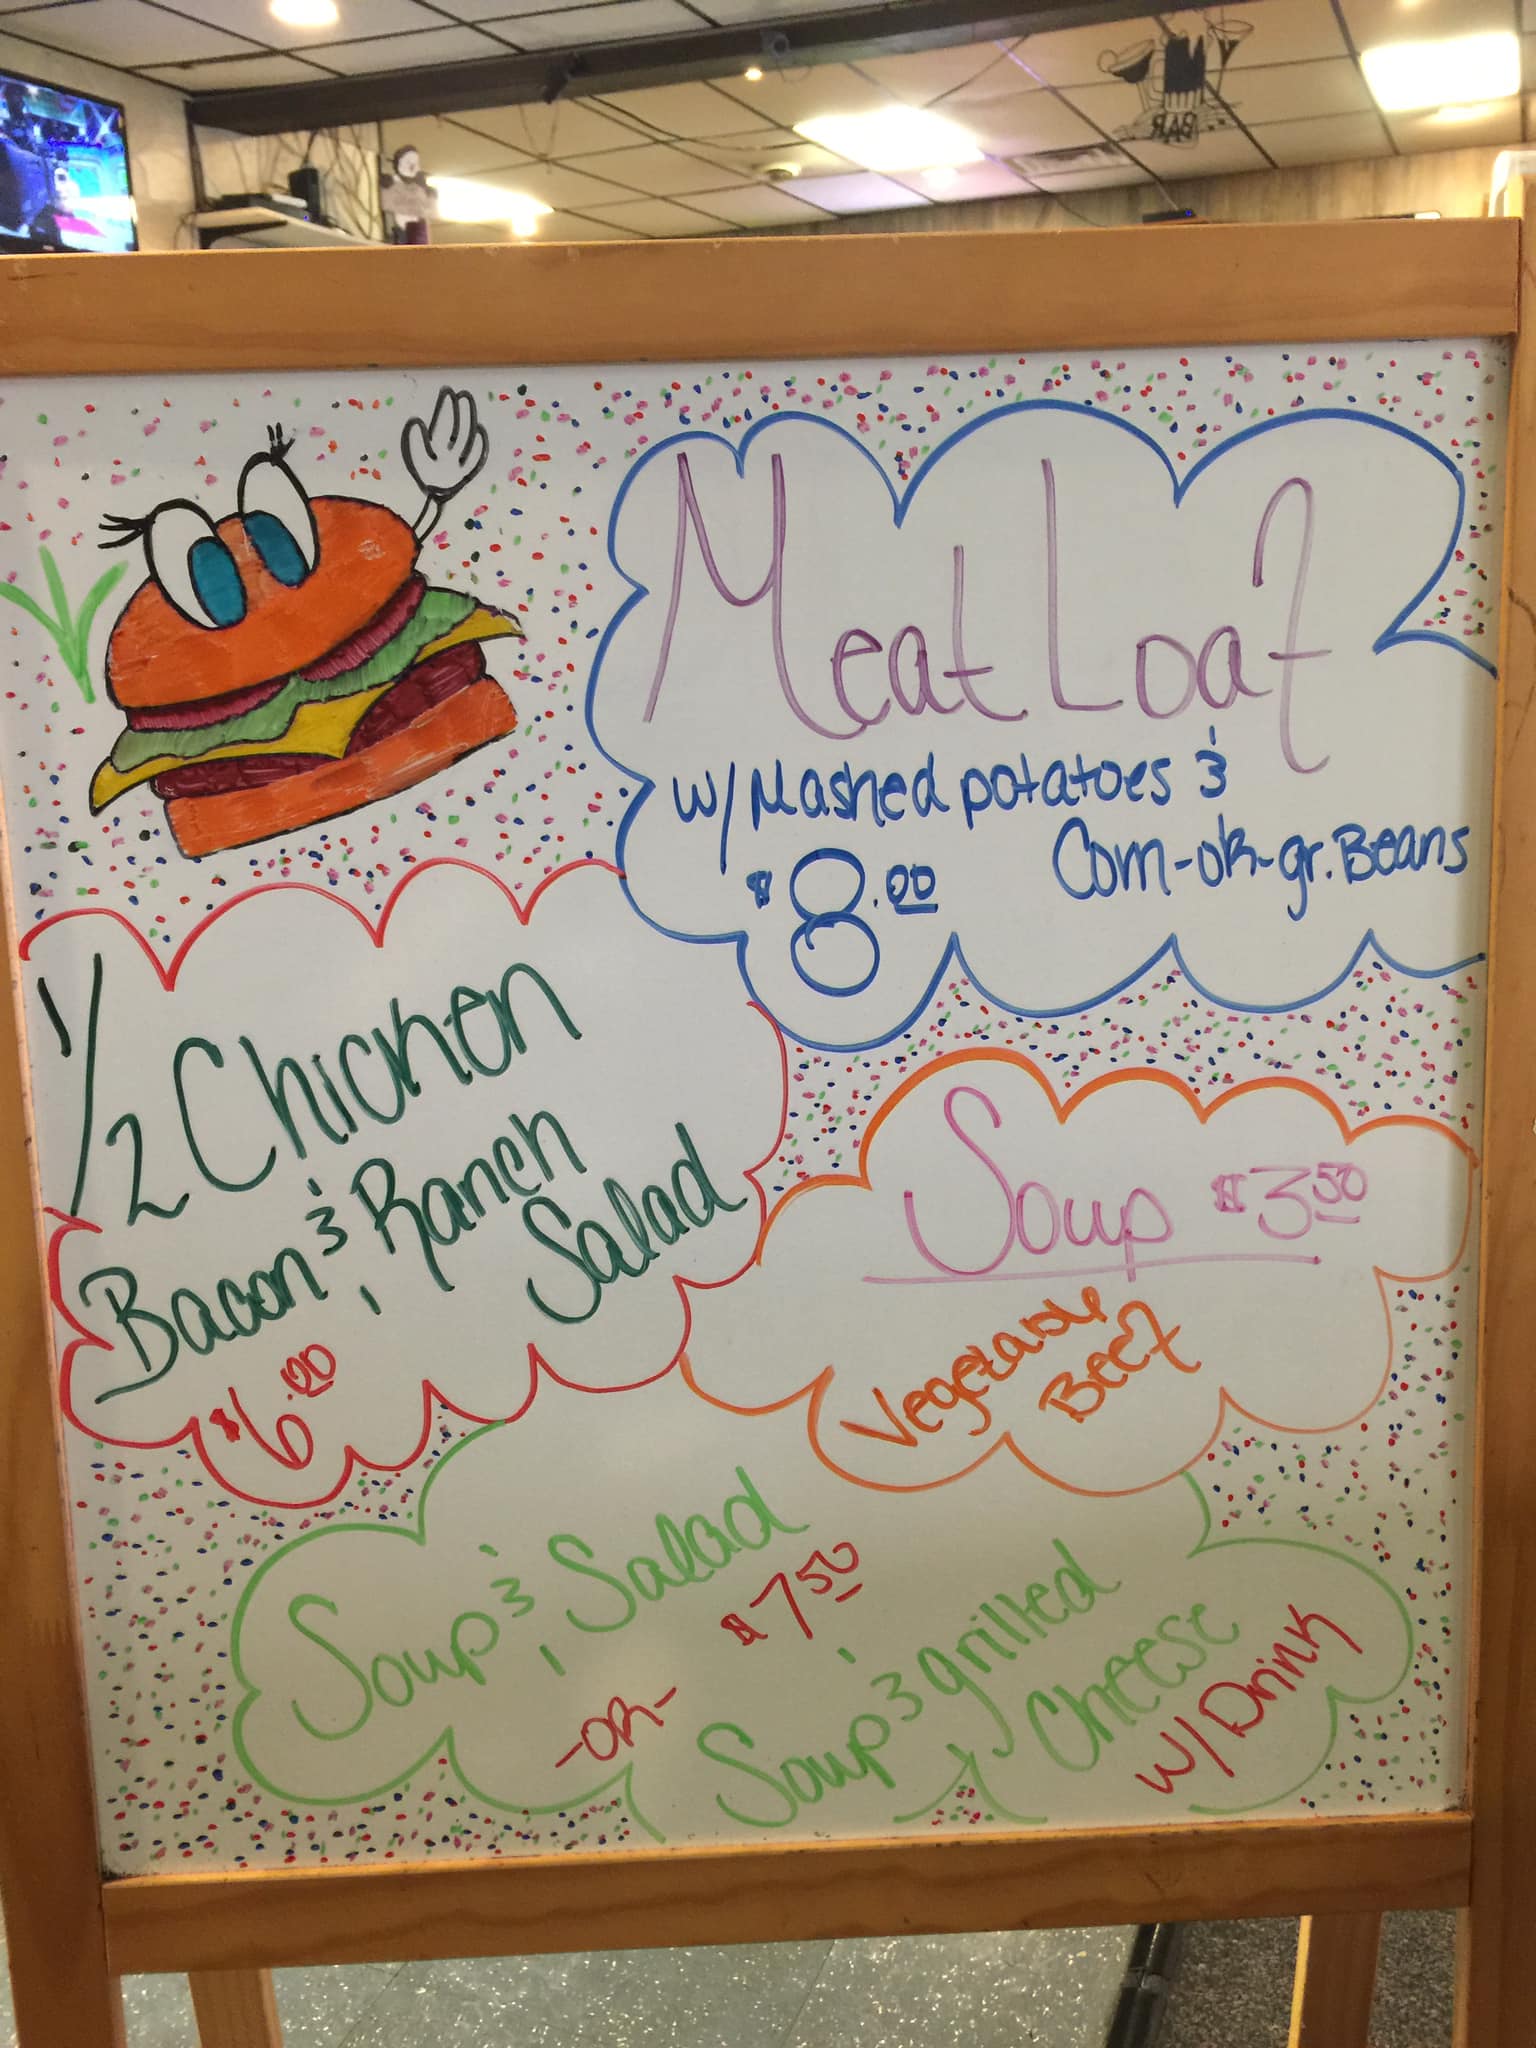 BAR
Meat Loaf
w/Mashed potatoes &
Corn-OR-gr.Beans
$8.00
1/2 Chicken
Bacon & Ranch
Salad
$6.00
Soup $3.50
Vegetable
Beef
Soup & Salad
$7.50
-OR-
Soup & grilled
Cheese
w/Drink